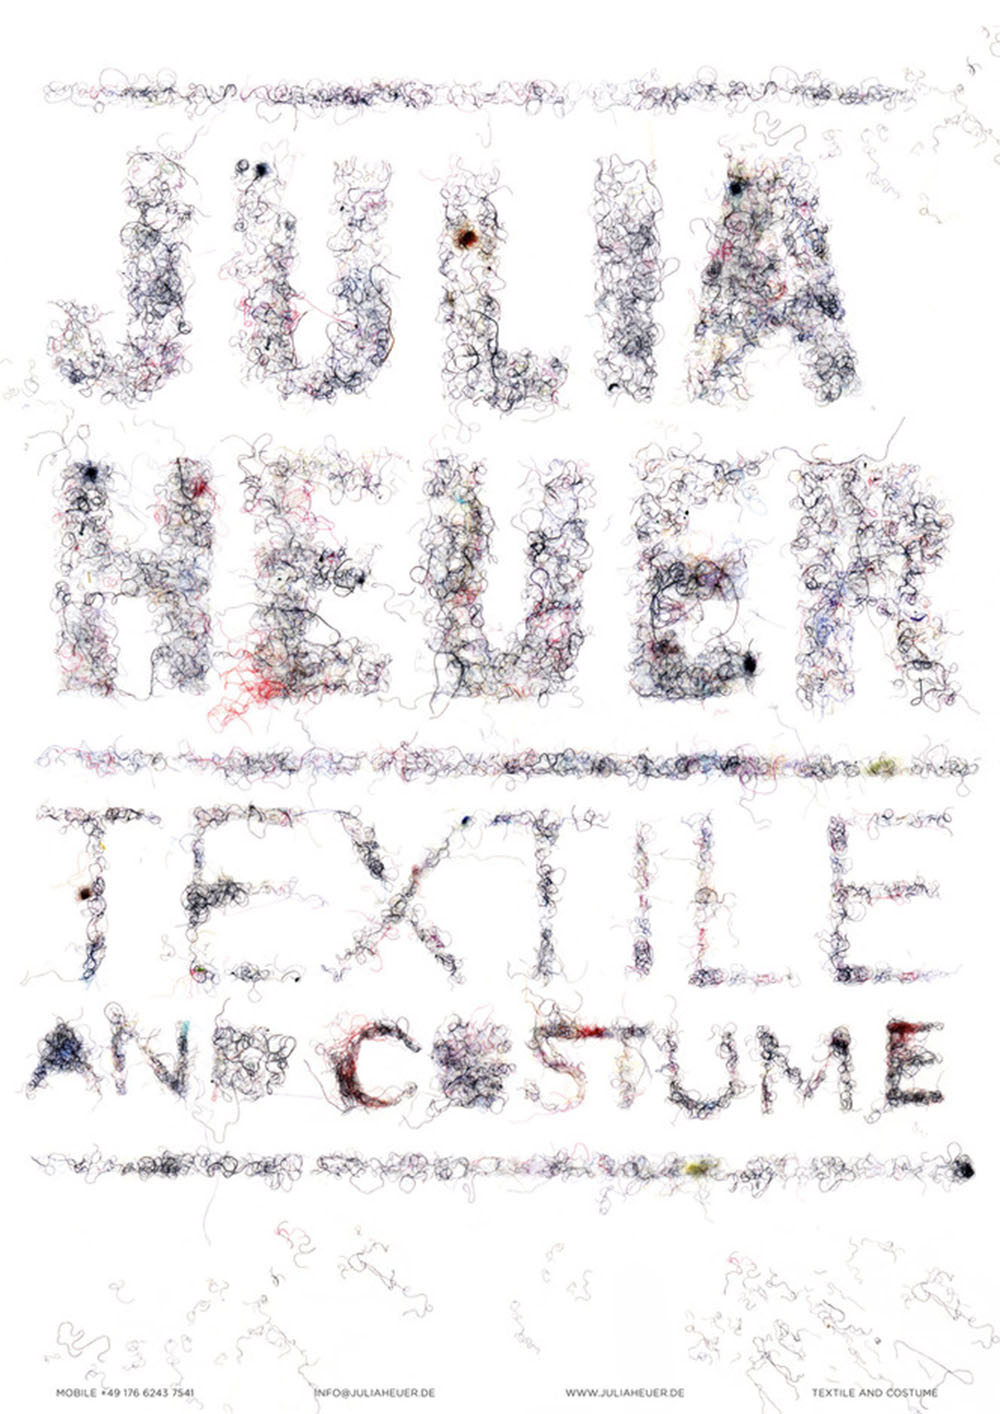 JULIA
HEUER
TEXTILE
AND COSTUME
MOBILE +49 176 6243 7541 INFO@JULIAHEUER.DE WWW.JULIAHEUER.DE TEXTILE AND COSTUME